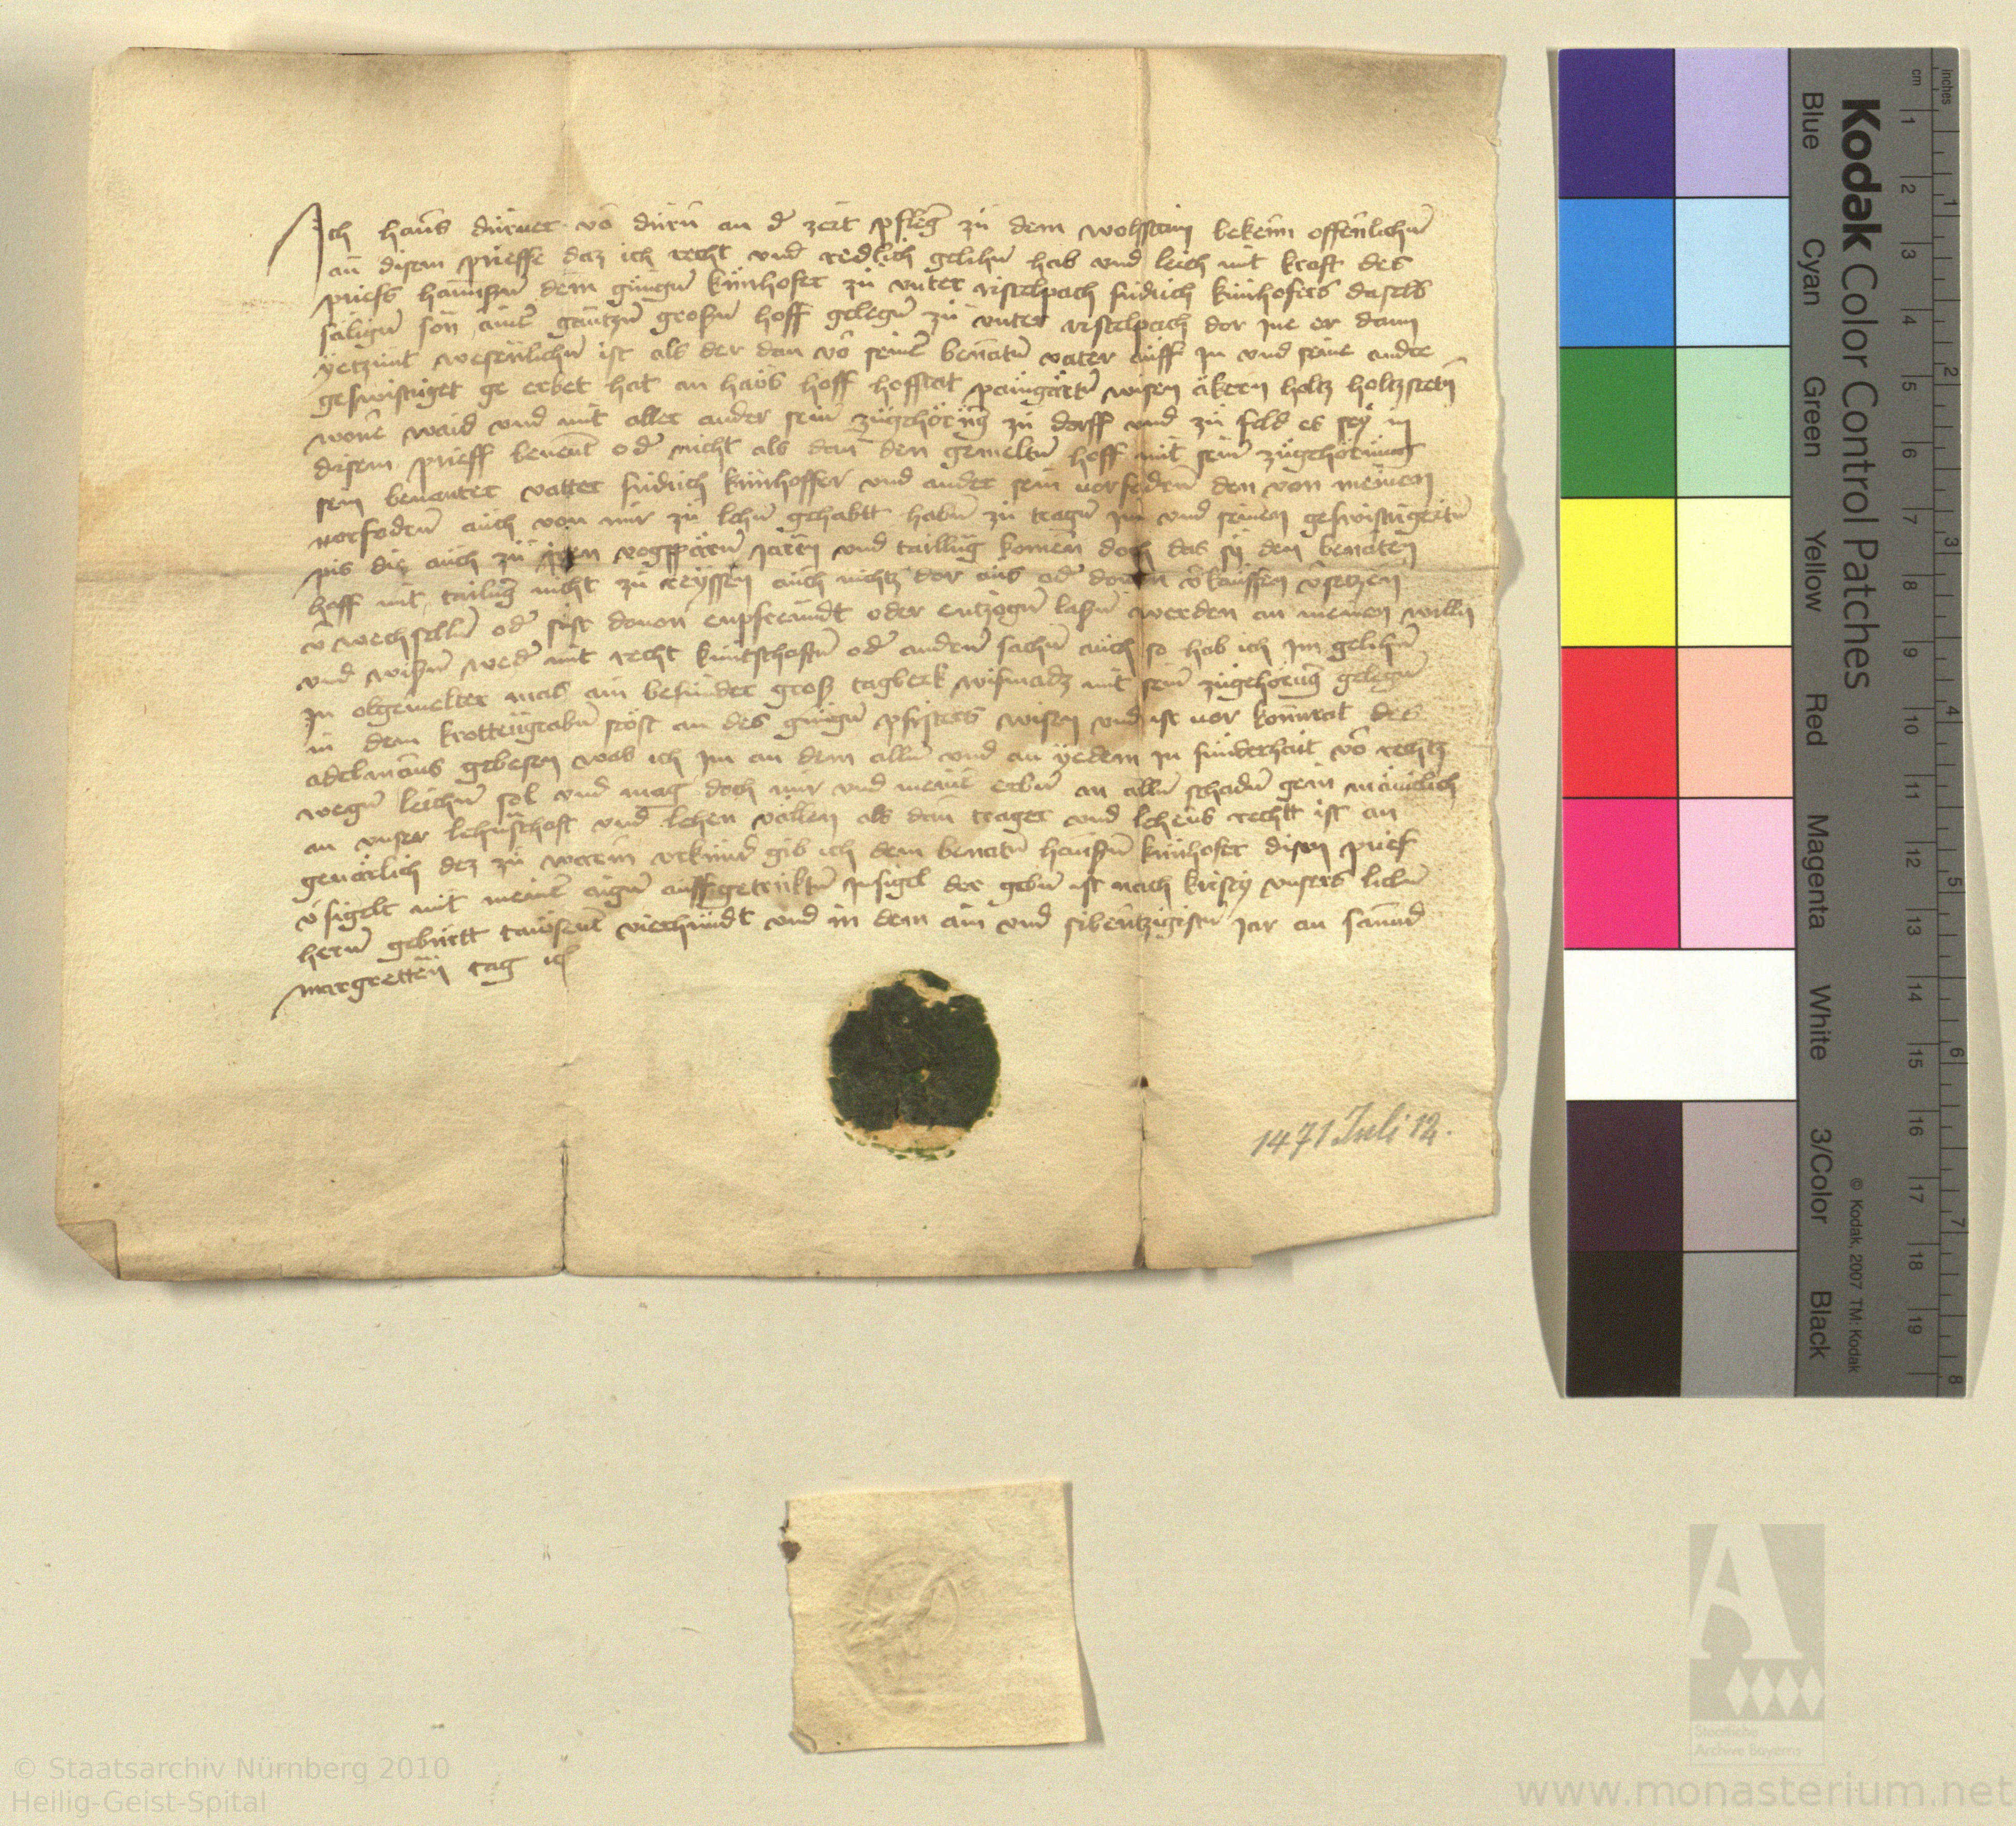 Ich hanns dürner vō dürn an dˀ zeit pflegˀ zu dem wolfstain bekenn offenlichn̄
an disem prieffe daz ich recht vnd redlich gelihn̄ hab vnd leich mit kraft des
priefs hannßn̄ dem güngn̄ künhofer zu vnter fridrich künhofers daselbs
sälign̄ sön ainē gantzn̄ großn̄ hoff gelegn̄ zu vnter dor jne er dann
yetzunt wesenlichn̄ ist als der dan vō seinē benātn̄ vater auff jn vnd seine ander
geswistriget ge erbet hat an haws hoff hofstat paungärtn̄ wisen äkern holtz
wone waid vnd mit aller ander sein zugehörūg zu dorff vnd zu feld es sey in
disem prieff benent odˀ nicht als dan den gemeltn̄ hoff mit sein zugehörung
sein benanter vatter fridrich künhoffer vnd ander sein vorfodern den von meinen
vorfodern auch von mir zu lehn̄ gehabtt habn̄ zu tragn̄ jm vnd seinen geswistrigettn̄
pis die auch zu jren vogtpärn̄ jaren vnd taillūg komen doch das sy den benāten
hoff mit tailūg nicht zu reyssen auch nichtz dor aus odˀ vˀkauffen vˀsetzen
vˀwechselln̄ odˀ süst dauon enpfrömdt oder entzogn̄ laßn̄ werden an meinen willn̄
vnd wißn̄ wedˀ mit recht kuntschaftn̄ odˀ andern sachn̄ auch so hab ich jm gelihn̄
Jn obgemelter mas ain besunder groß tagberk wismadz mit sein zugehörūg gelegn̄
in dem krottengrabn̄ stöst an des güngn̄ pfisters wisen vnd ist vor konnrat des
adelmans gebesen was ich jm an dem alln̄ vnd an yedem in sunderhait vō rechtz
wegn̄ leichn̄ sol vnd mag doch mir vnd meinē erbn̄ an alln̄ schadn̄ gein mäniclich
an vnser lehnschaft vnd lehen vällen als dan trager vnd lehens rechtt ist an
geuärlich dez zu warem vrkund gib ich dem benātn̄ hannßn̄ künhofer disen prief
vˀsigelt mit meinē aign̄ auffgetruktn̄ jnsigel der gebn̄ ist nach kristy vnsers liebn̄
hern gebürtt tausent vierhundt vnd in dem ain vnd sibentzigistn̄ jar an sannd
margretten tag
1471 Juli 12.
Kodak Color Control Patches
Blue Cyan Green Yellow Red Magenta White 3/Color Black
© Kodak, 2007 TM: Kodak
inches 1 2 3 4 5 6 7 8
cm 1 2 3 4 5 6 7 8 9 10 11 12 13 14 15 16 17 18 19
Staatliche
Archive Bayerns
© Staatsarchiv Nürnberg 2010
Heilig-Geist-Spital
www.monasterium.net